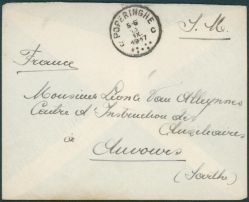 S. M.
C POPERINGHE C
5-6
IX
1917
France
Monsieur Léons Van Alleynnes
Centre d'Instruction des
Auxiliaires
à
Auvours
(Sarthe)